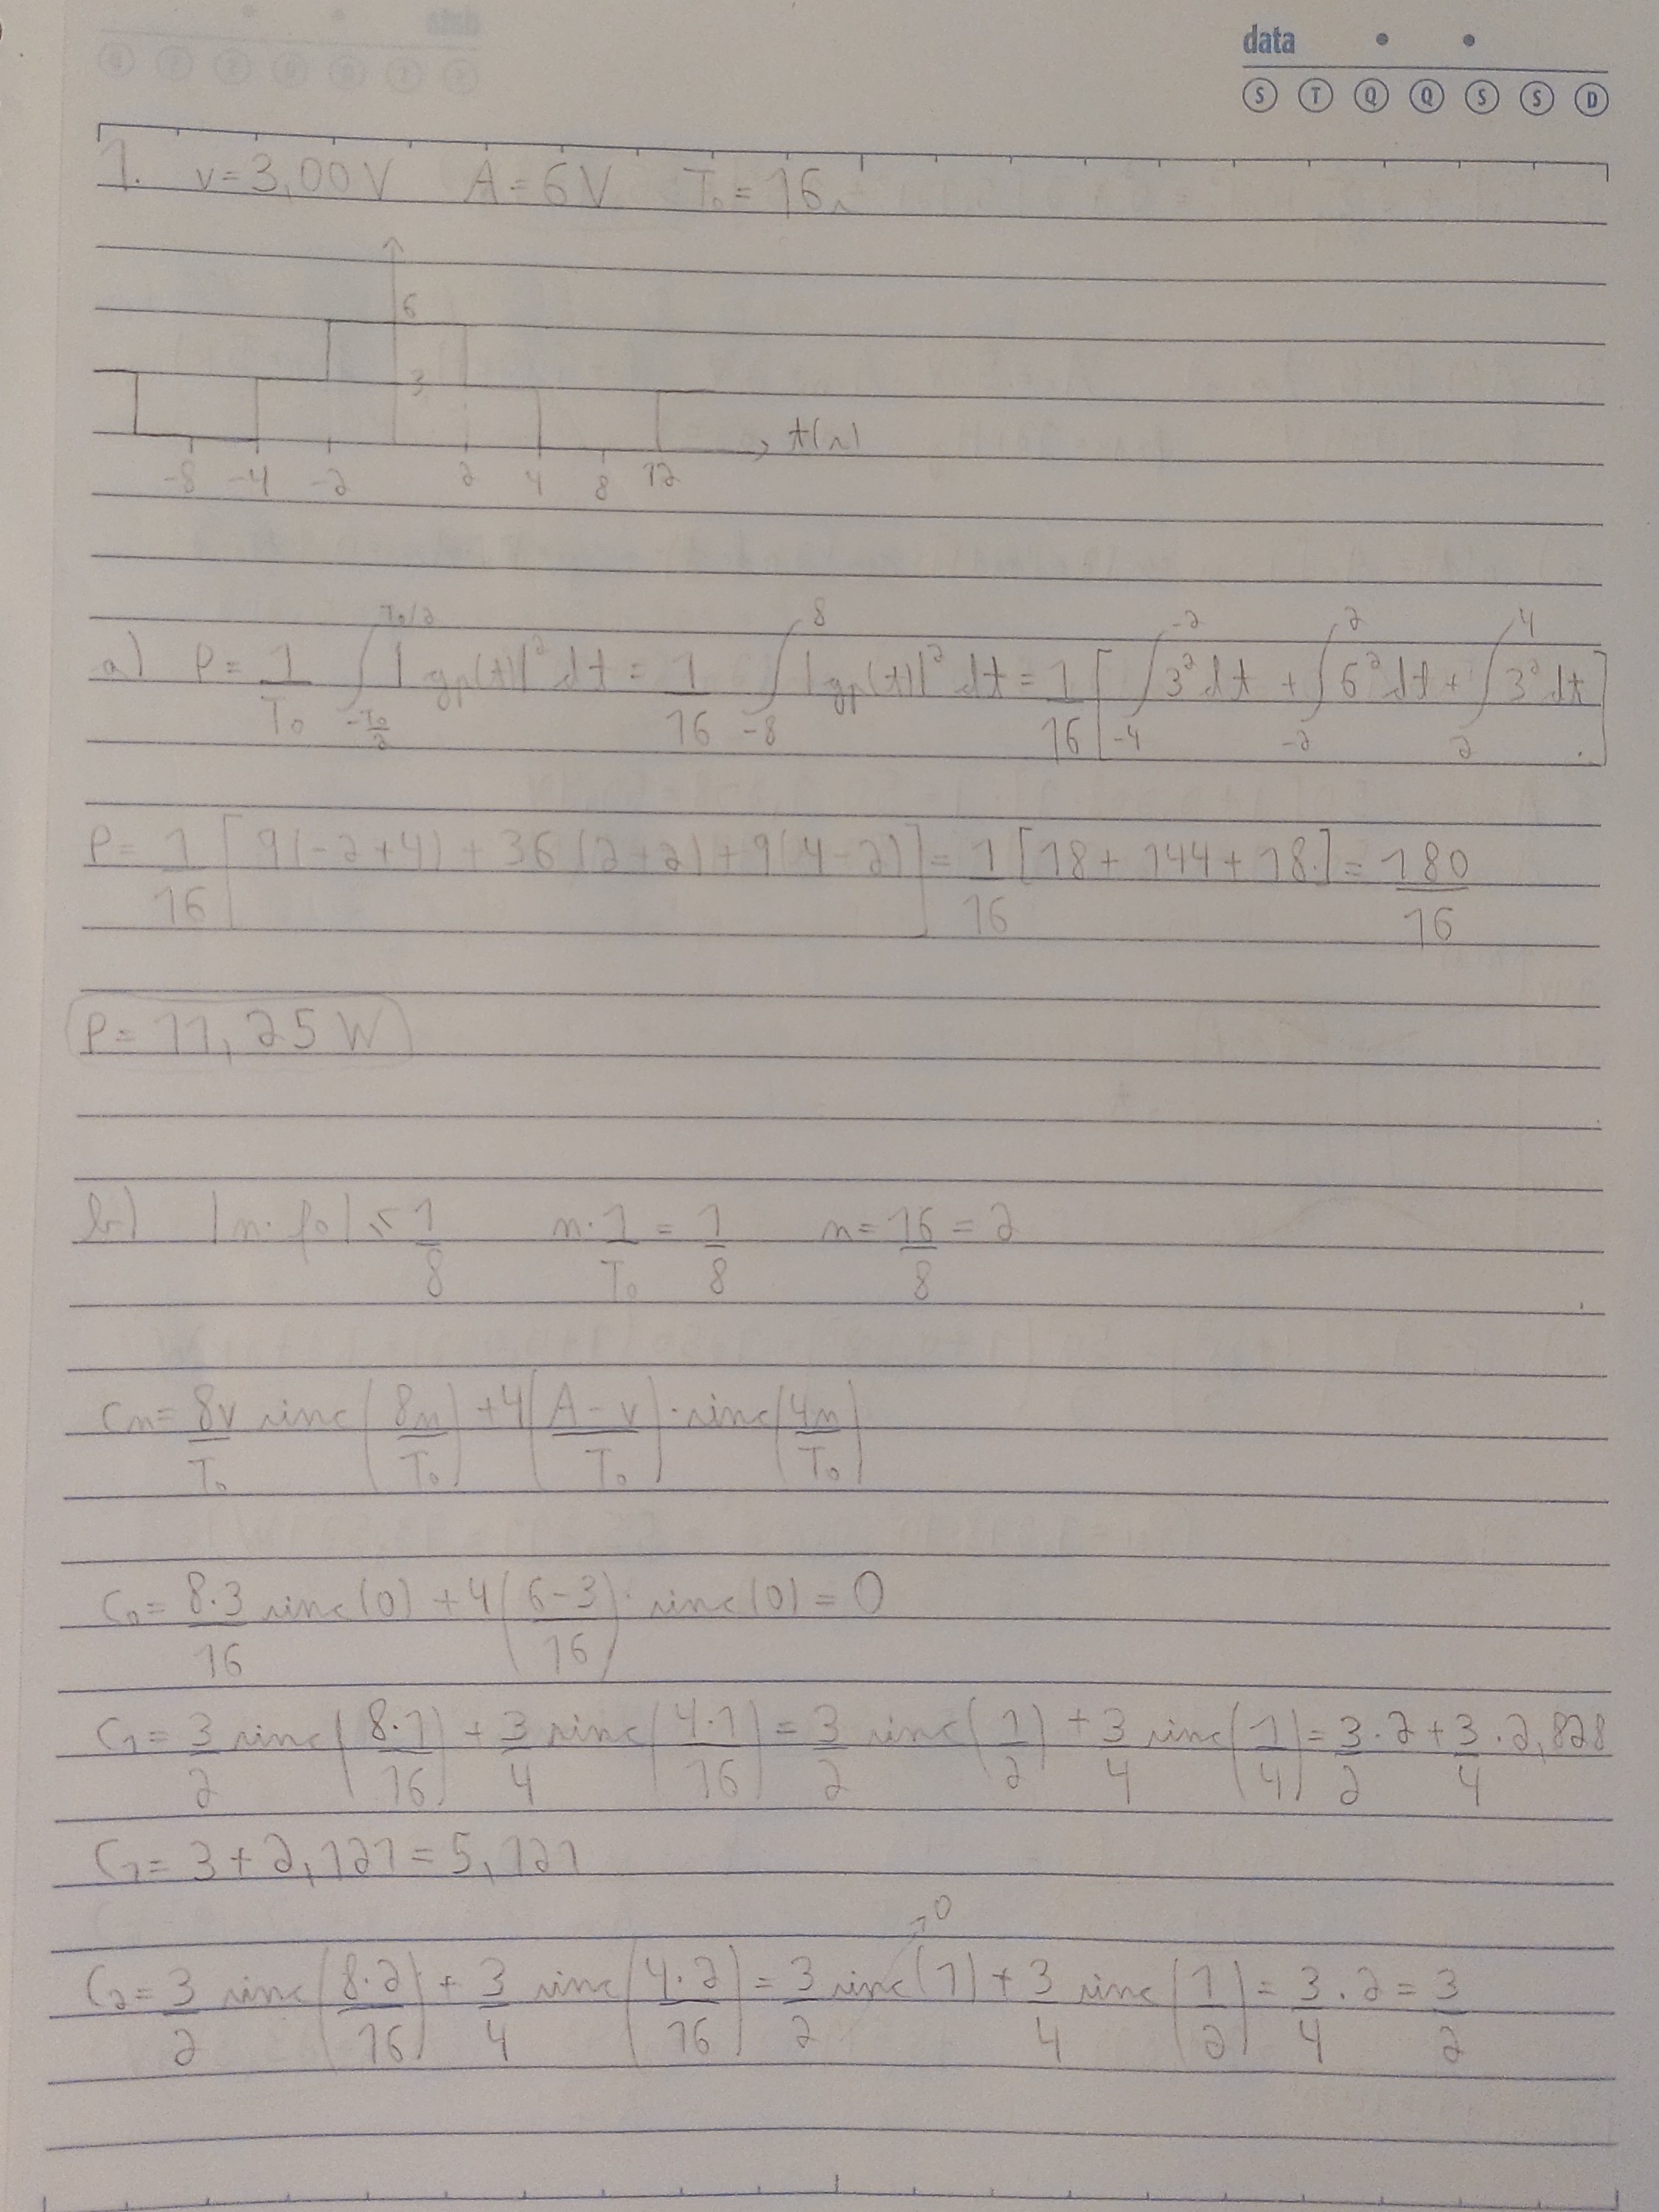 data
S T Q Q S S D
1. v=3,00V A=6V T₀=16s
6
3
t(s)
-8 -4 -2 2 4 8 12
a) P= 1/T₀ ∫_{-T₀/2}^{T₀/2} |gp(t)|² dt = 1/16 ∫_{-8}^{8} |gp(t)|² dt = 1/16 [∫_{-4}^{-2} 3² dt + ∫_{-2}^{2} 6² dt + ∫_{2}^{4} 3² dt]
P= 1/16 [9(-2+4) + 36(2+2) + 9(4-2)] = 1/16 [18 + 144 + 18] = 180/16
P= 11,25 W
b) |n·f₀| ≤ 1/8 n·1/T₀ = 1/8 n= 16/8 = 2
Cn= 8v/T₀ sinc(8n/T₀) + 4(A-v/T₀)·sinc(4n/T₀)
C₀= 8·3/16 sinc(0) + 4(6-3/16)·sinc(0) = 0
C₁= 3/2 sinc(8·1/16) + 3/4 sinc(4·1/16) = 3/2 sinc(1/2) + 3/4 sinc(1/4) = 3/2·2 + 3/4·2,828
C₁= 3+2,121=5,121
→0
C₂= 3/2 sinc(8·2/16) + 3/4 sinc(4·2/16) = 3/2 sinc(1) + 3/4 sinc(1/2) = 3/4·2 = 3/2